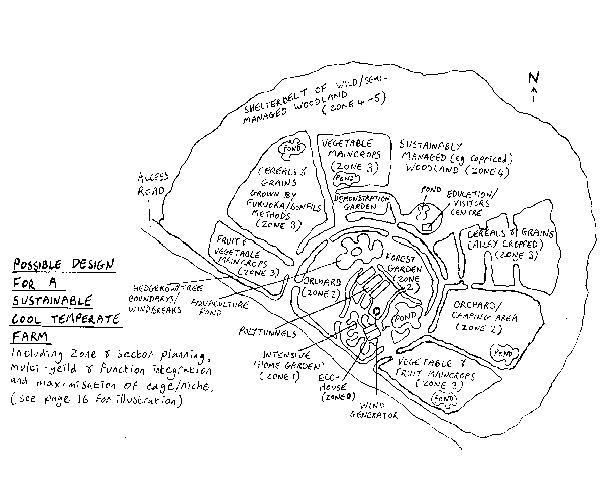 SHELTERBELT OF WILD/SEMI-
MANAGED WOODLAND
(ZONE 4-5)
N
POND
CEREALS &
GRAINS
GROWN BY
FUKUOKA/BONFILS
METHODS
(ZONE 3)
VEGETABLE
MAINCROPS
(ZONE 3)
POND
DEMONSTRATION
GARDEN
SUSTAINABLY
MANAGED (eg COPPICED)
WOODLAND (ZONE 4)
POND
EDUCATION/
VISITORS
CENTRE
ACCESS
ROAD
FRUIT &
VEGETABLE
MAINCROPS
(ZONE 3)
CEREALS & GRAINS
(ALLEY CROPPED)
(ZONE 3)
FOREST
GARDEN
(ZONE
2)
ORCHARD
(ZONE 2)
HEDGEROW/TREE
BOUNDARYS/
WINDBREAKS
AQUACULTURE
POND
ORCHARD/
CAMPING AREA
(ZONE 2)
POND
POND
POLYTUNNELS
INTENSIVE
'HOME GARDEN'
(ZONE 1)
ECO-
HOUSE
(ZONE 0)
WIND
GENERATOR
VEGETABLE &
FRUIT MAINCROPS
(ZONE 3)
POND
POSSIBLE DESIGN
FOR A
SUSTAINABLE
COOL TEMPERATE
FARM
Including Zone & sector planning,
multi-yeild & function integration
and maximisation of edge/niche.
(see page 16 for illustration)